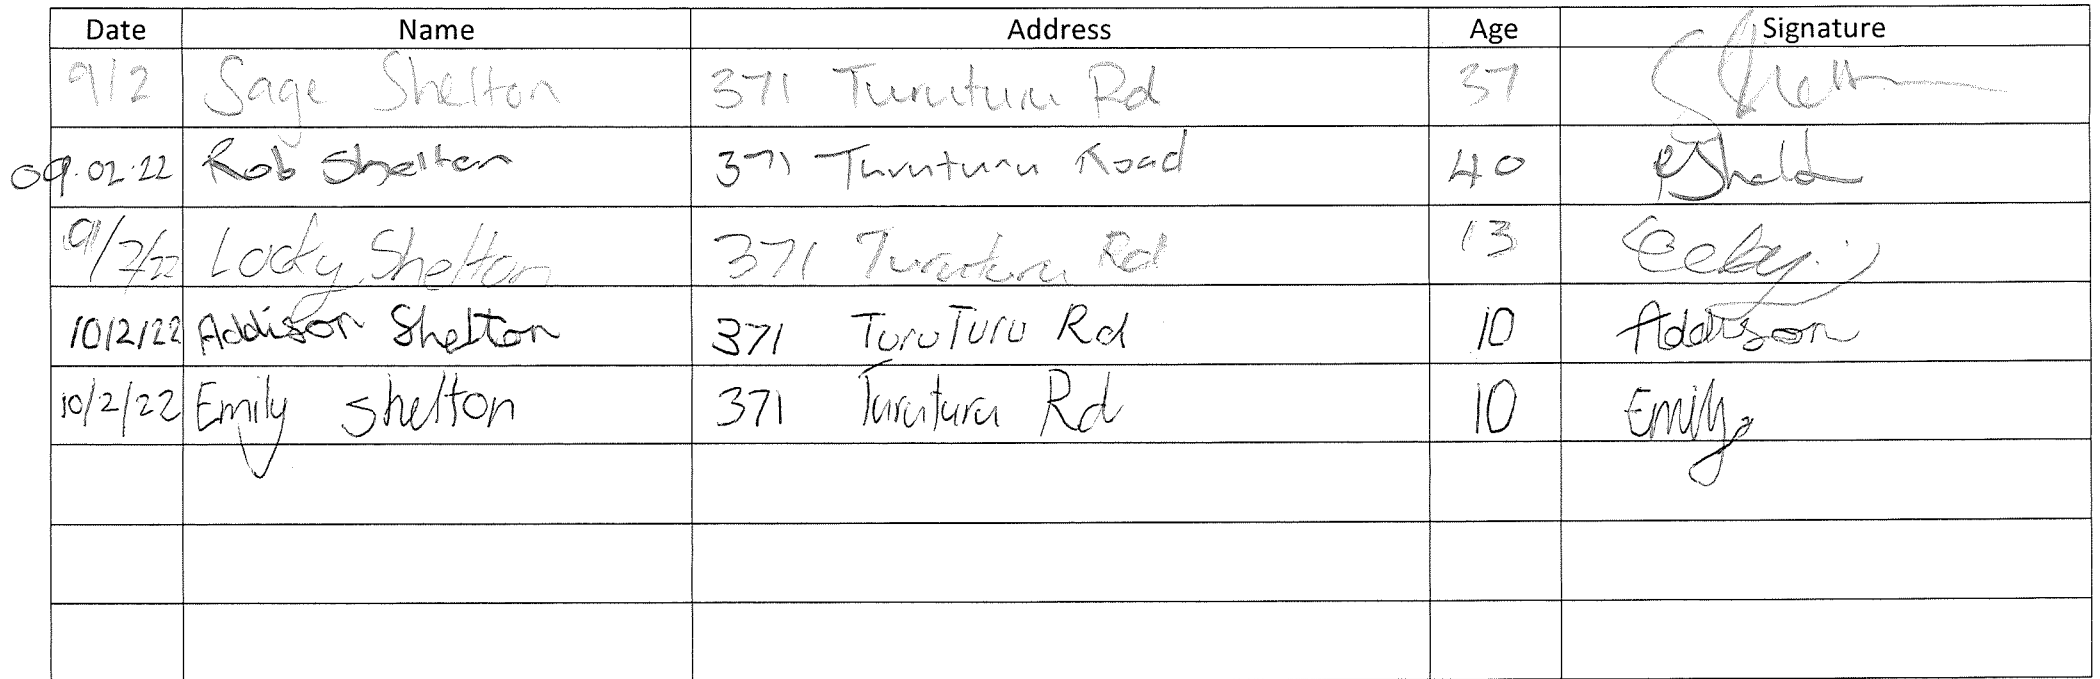 Date Name Address Age Signature
9/2 Sage Shelton 371 Turuturu Rd 37 SShelton
09.02.22 Rob Shelton 371 Turuturu Road 40
9/2/22 Locky Shelton 371 Turuturu Rd 13
10/2/22 Addison Shelton 371 TuruTuru Rd 10 Addison
10/2/22 Emily Shelton 371 Turuturu Rd 10 Emily